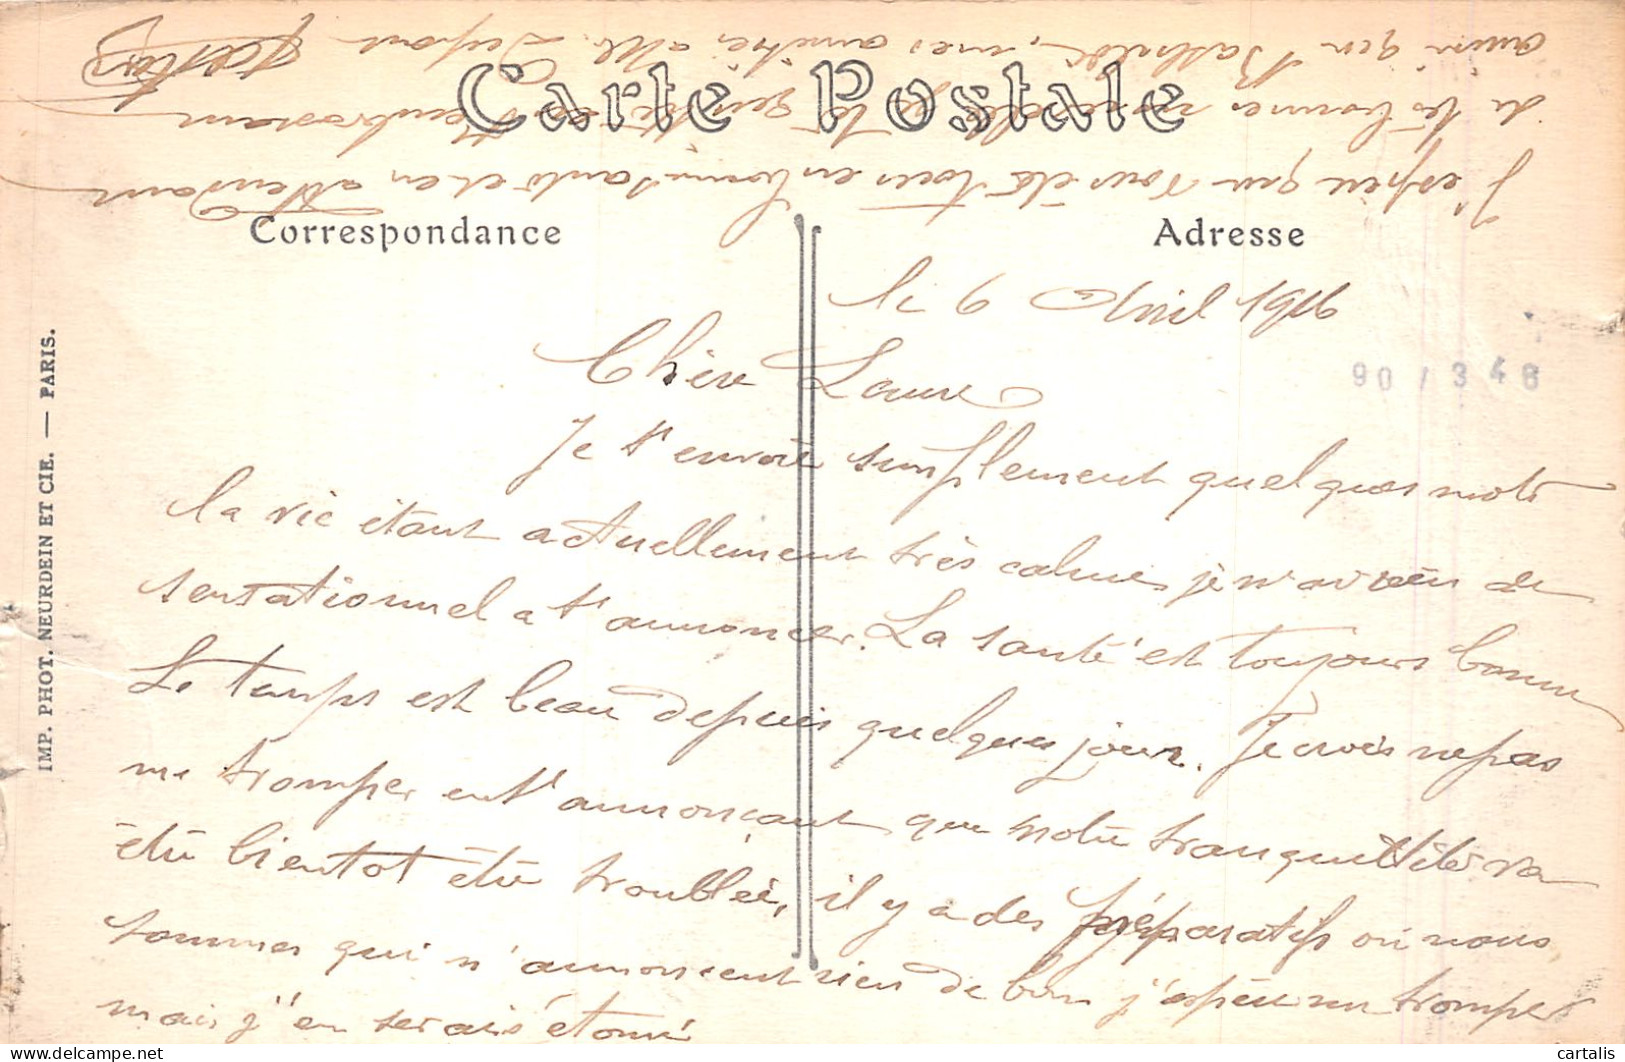 Carte Postale
Correspondance
Adresse
le 6 Avril 1916
90 / 3 4 8
Chère Laure
Je t'envoie simplement quelques mots
la vie étant actuellement très calme je n'ai rien de
sensationnel a t'annoncer. La santé est toujours bonne
Le temps est beau depuis quelques jours. Je crois ne pas
me tromper en t'annonçant que notre tranquillité va
être bientot être troublée, il y a des préparatifs où nous
sommes qui n'annoncent rien de bon j'espère me tromper
mais j'en serais étonné
J'espère que vous êtes tous en bonne santé et en attendant
de tes bonnes nouvelles
ainsi que mes amitiés
Gaston
IMP. PHOT. NEURDEIN ET CIE. — PARIS.
cartalis
© delcampe.net